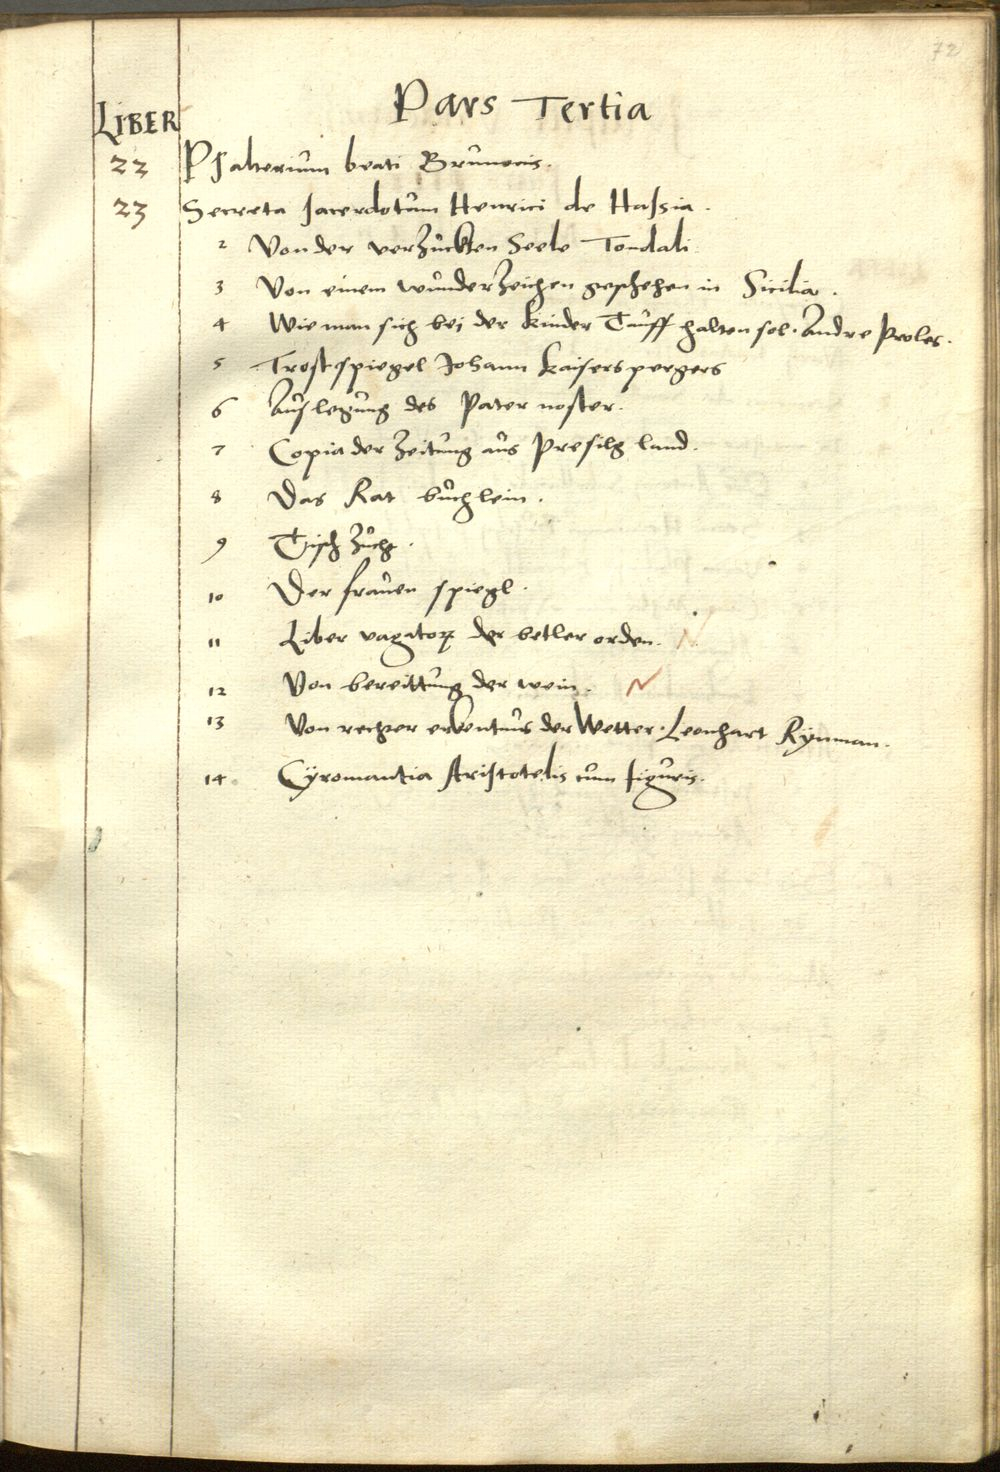 72
Pars Tertia
LIBER
22 Psalterium beati Brunonis.
23 Secreta sacerdotum Henrici de Hassia.
2 Von der verzuckten Seele Tondali
3 Von einem wunderzeichen geschehen in Sicilia.
4 Wie man sich bei der kinder Tauff halten sol. Andre Proles.
5 Trostspiegel Johann kaiserspergers
6 Auslegung des Pater noster.
7 Copia der Zeitung aus Presilg land.
8 Das Rat buchlein.
9 Tisch zucht.
10 Der frauen spiegl.
11 Liber vagatoꝝ der betler orden.
12 Von bereittung der wein.
13 Von rechter erkentnus der Wetter. Leonhart Rynman.
14 Cyromantia Aristotelis cum figuris.